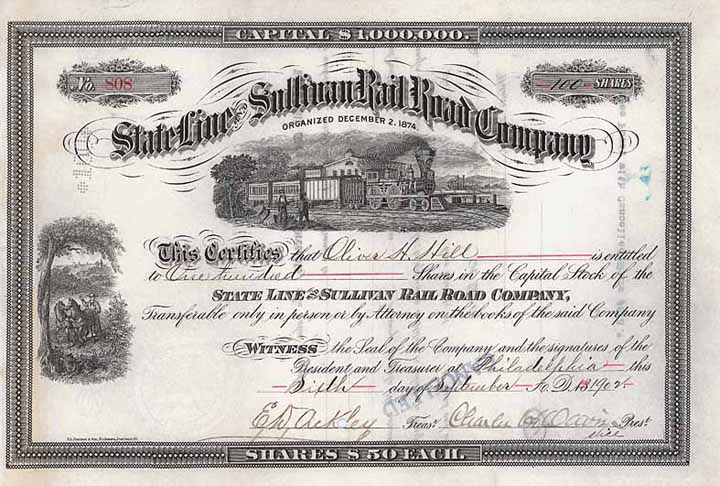 CAPITAL $1,000,000.
No. 808
100 SHARES
State Line and Sullivan Rail Road Company
ORGANIZED DECEMBER 2, 1874.
This Certifies that Oliver H. Hill is entitled
to One hundred Shares, in the Capital Stock of the
STATE LINE AND SULLIVAN RAIL ROAD COMPANY,
Transferable only in person or by Attorney on the books of the said Company
WITNESS the Seal of the Company and the signatures of the
President and Treasurer at Philadelphia this
Sixth day of September A.D. 1902.
E. D. Ackley Treasr. Charles Presr.
Vice
SHARES $50 EACH.